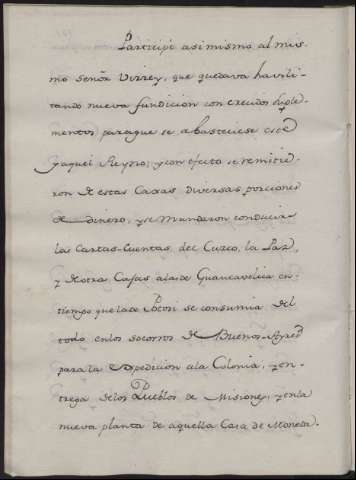 Participé asimismo al mis-
mo señor Virrey, que quedava havili-
tando nueva fundicion con crecidos suple-
mentos paraque se abasteciese este
y aquel Reyno; y con efecto se remitie-
ron de estas Caxas diversas porciones
de dinero, y se mandaron conducir
las Cartas-Cuentas del Cuzco, la Paz,
y de otras Caxas ala de Guancavelica en-
tiempo que la de Potosi se consumia del
todo en los socorros de Buenos-Ayres
para la Expedicion ala Colonia, y en-
trega de los Pueblos de Misiones, y en la
nueva planta de aquella Casa de Moneda.